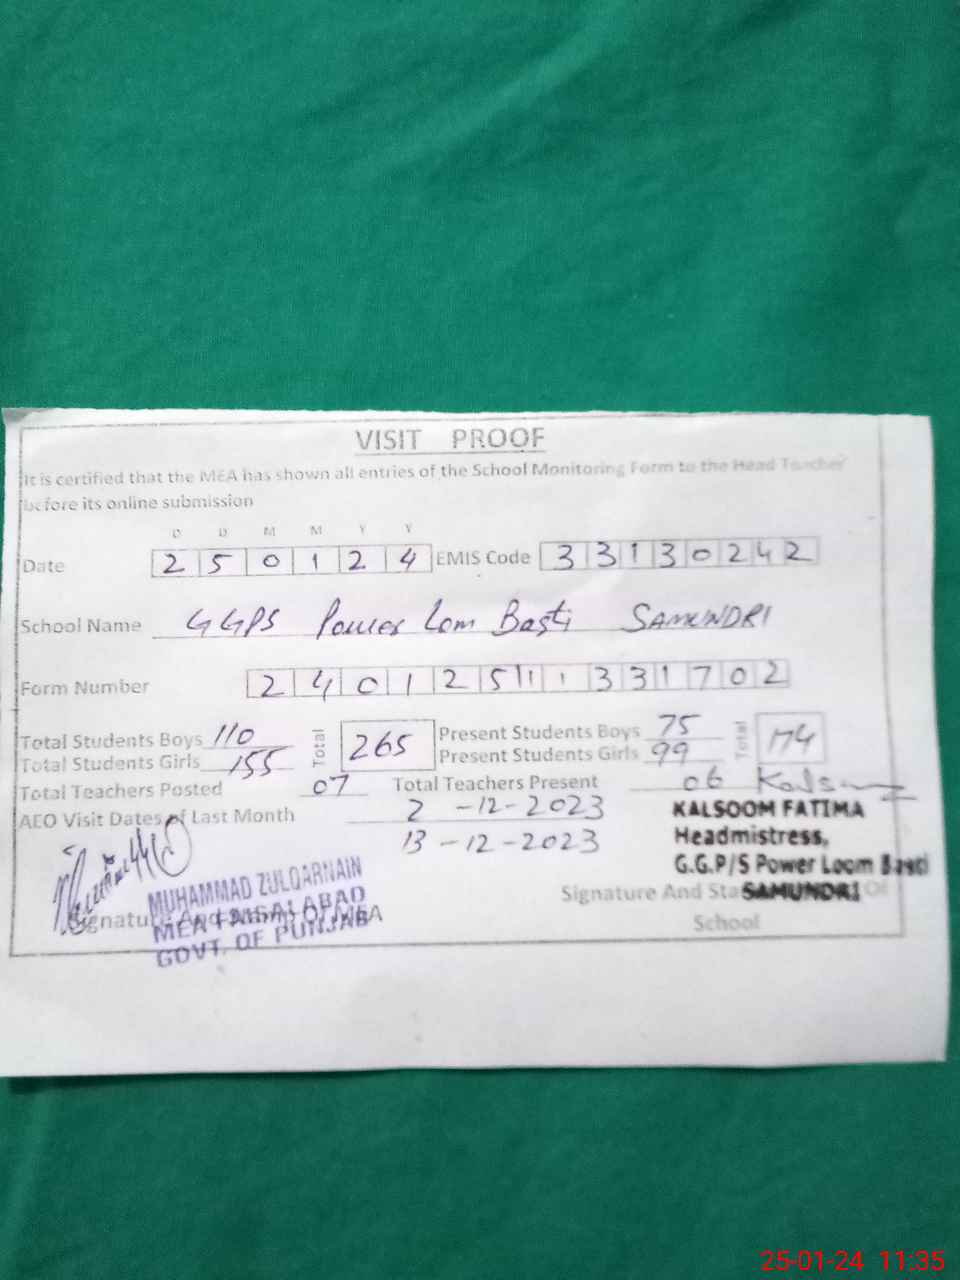 VISIT PROOF
It is certified that the MEA has shown all entries of the School Monitoring Form to the Head Teacher
before its online submission
D D M M Y Y
Date 2 5 0 1 2 4 EMIS Code 3 3 1 3 0 2 4 2
School Name GGPS Power Lom Basti SAMUNDRI
Form Number 2 4 0 1 2 5 1 1 3 3 1 7 0 2
Total Students Boys 110 Total 265 Present Students Boys 75 Total 174
Total Students Girls 155 Present Students Girls 99
Total Teachers Posted 07 Total Teachers Present 06
AEO Visit Dates of Last Month 2 -12-2023
13 -12-2023
KALSOOM FATIMA
Headmistress,
G.G.P/S Power Loom Basti
SAMUNDRI
Signature And Of
School
MUHAMMAD ZULQARNAIN
MEA FAISALABAD
GOVT. OF PUNJAB
Signature And Of MEA
25-01-24 11:35